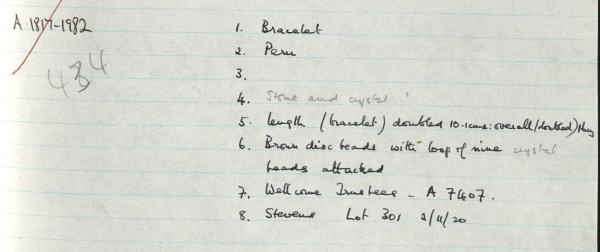 A 1817-1982
434
1. Bracelet
2. Peru
3.
4. Stone and crystal
5. length (bracelet) doubled 10.1cms: overall (doubled)
6. Brown disc beads with loop of nine crystal
beads attached
7. Wellcome Trustees - A 7607.
8. Stevens Lot 301 2/11/20